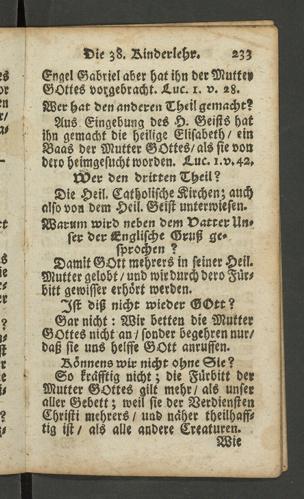 Die 38. Kinderlehr. 233
Engel Gabriel aber hat ihn der Mutter
GOttes vorgebracht. Luc. 1. v. 28.
Wer hat den anderen Theil gemacht?
Aus Eingebung des H. Geists hat
ihn gemacht die heilige Elisabeth / ein
Baas der Mutter GOttes / als sie von
dero heimgesucht worden. Luc. 1. v. 42.
Wer den dritten Theil?
Die Heil. Catholische Kirchen; auch
also von dem Heil. Geist unterwiesen.
Warum wird neben dem Vatter Un-
ser der Englische Gruß ge-
sprochen?
Damit GOtt mehrers in seiner Heil.
Mutter gelobt / und wir durch dero Für-
bitt gewisser erhört werden.
Ist diß nicht wieder GOtt?
Gar nicht: Wir betten die Mutter
GOttes nicht an / sonder begehren nur /
daß sie uns helffe GOtt anruffen.
Können s wir nicht ohne Sie?
So kräfftig nicht; die Fürbitt der
Mutter GOttes gilt mehr / als unser
aller Gebett; weil sie der Verdiensten
Christi mehrers / und näher theilhaff-
tig ist / als alle andere Creaturen.
Wie